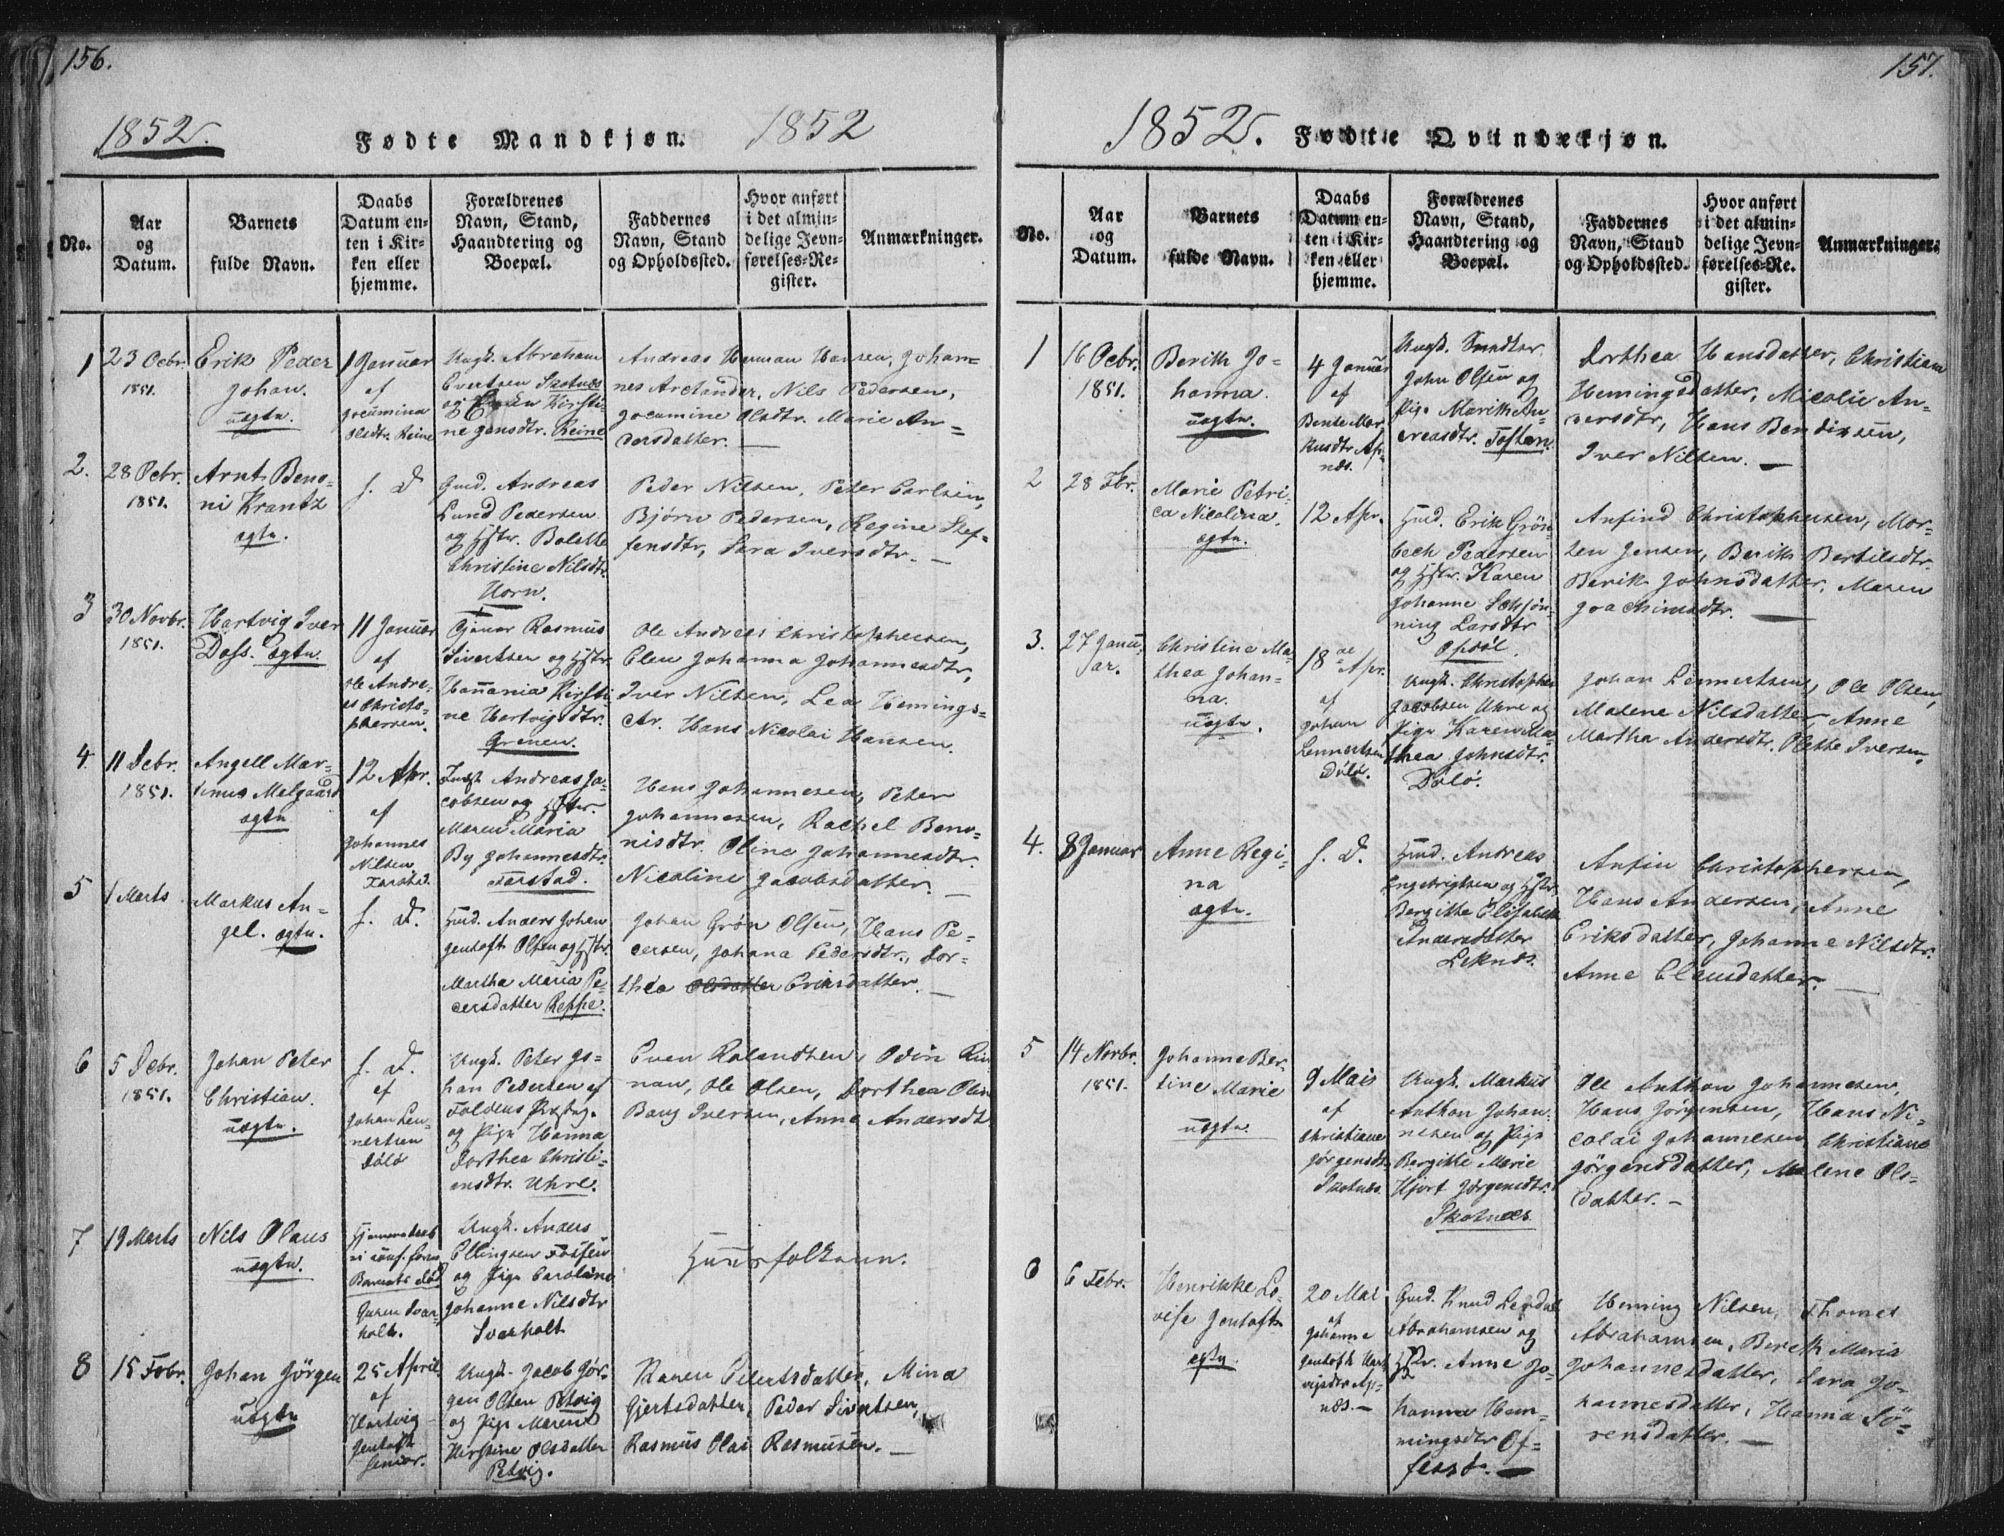 156.
1852. Fødte Mandkjøn. 1852
No.
Aar og Datum.
Barnets fulde Navn.
Daabs Datum enten i Kirken eller hjemme.
Forældrenes Navn, Stand, Haandtering og Boepæl.
Faddernes Navn, Stand og Opholdssted.
Hvor anført i det almindelige Jevnførelses-Register.
Anmærkninger.
1
23 Decbr.
1851.
Erik Peder
Johan.
uægte.
1 Januar
af
Jocumina
Olsdtr. Reine
Ungk. Abraham
Evertsen Skotnæs
og Kirsti-
ne Jensdtr. Reine
Andreas Herman Hansen, Johan-
nes Arctander, Nils Pedersen,
Jocumine Olsdtr. Marie An-
dersdatter. —
2.
28 Decbr.
1851.
Arnt Beno-
ni Krantz
ægte.
s. D.
Gmd. Andreas
Lund Pedersen
og Hstr. Bolette
Christine Nilsdtr.
Horn.
Peder Nilsen, Peter Carlsen,
Bjørn Pedersen, Regine Stef-
fensdtr, Sara Iversdtr. —
3
30 Novbr.
1851.
Hartvig Iver
Dass. Ægte.
11 Januar
af
Ole Andre-
as Christo-
phersen.
Rasmus
Sivertsen og Hstr.
Hannania Kirsti-
ne Hartvigsdtr.
Grenen.
Ole Andreas Christophersen,
Elen Johanna Johannesdtr,
Iver Nilsen, Lea Hemings-
dtr. Hans Nicolai Hansen.
4.
11 Decbr.
1851.
Angell Mar-
tinus Melgaard
ægte
12 Apr.
af
Johannes
Nilsen
Farstad.
Indst. Andreas Ja-
cobsen og Hstr.
Maren Maria
By Johannesdtr.
Farstad.
Hans Johannesen, Peter
Johannesen, Rachel Beno-
nisdtr. Oline Johannesdtr.
Nicoline Jacobsdatter. —
5
1 Marts
Markus An-
gel. ægte.
s. D.
Hmd. Anders Johan
Jentoft Olsen og Hstr.
Martha Maria Pe-
dersdatter Reppe.
Johan Grøn Olsen, Hans Pe-
dersen, Johana Pedersdtr., Dor-
thea Olsdatter Eriksdatter. —
6
5 Decbr.
1851.
Johan Peter
Christian.
uægte.
s. D.
af
Johan Len-
nertsen
Dölö
Ungk. Peter Jo-
han Pedersen af
Foldens Præstegj.
og Pige Hanna
Dorthea Christi-
ensdtr. Uhre.
Even Rolandsen, Odin Rin-
nan, Ole Olsen, Dorthea Olin
Bang Iversen, Anne Andersdt
7
19 Marts
Nils Olaus
uægte.
Hjemmedøbt
Barnets død
Svær-
holt.
Ungk. Anders
Ellingsen
og Pige Caroline
Johanne Nilsdtr
Sværholt
Huusfolkene.
8
15 Febr.
Johan Jörgen
uægte
25 April
af
Hartvig
Jentoft
senior.
Ungk. Jacob Jör-
gen Olsen Petvig
og Pige Maren
Kirstine Olsdatter
Petvig.
Karen Eilertsdatter, Mina
Gjertsdatter, Peder Sivertsen,
Rasmus Olai Rasmusen. —
157.
1852. Fødte Qvindekjøn.
No.
Aar og Datum.
Barnets fulde Navn.
Daabs Datum enten i Kirken eller hjemme.
Forældrenes Navn, Stand, Haandtering og Boepæl.
Faddernes Navn, Stand og Opholdssted.
Hvor anført i det almindelige Jevnførelses-Register.
Anmærkninger.
1
16 Decbr.
1851.
Berith Jo-
hanna.
uægte.
4 Januar
af
Bente Mar-
kusdtr Ap-
næs.
Ungk. Snedker
John Olsen og
Pige Marith An-
dreasdtr. Toften.
Dorthea Hansdatter, Christian
Hemingsdatter, Nicolie An-
dersdtr, Hans Bendixsen,
Iver Nilsen. —
2
28 Fbr.
Marie Petri-
ca Nicolina.
ægte.
12 Apr.
Hmd. Erik Grön-
bech Pedersen
og Hstr. Karen
Johanne Schjön-
ning Larsdtr
Opdøl.
Anfind Christophersen, Mor-
ten Jensen, Berith Bertelsdtr.
Berik Johnsdatter, Maren
Joachimsdtr. —
3.
27 Janu-
ar.
Christine Ma-
thea Johan-
na.
uægte.
18de Apr.
af
Johan
Lennertsen
Dölö.
Ungk. Christopher
Jacobsen Uhre og
Pige Karen Ma-
thea Johnsdtr.
Dölö.
Johan Lennertsen, Ole Olsen,
Malene Nilsdatter, Anne
Martha Andersdtr. Olette Iversen.
4.
8 Januar
Anne Regi-
na
ægte.
s. D.
Hmd. Andreas
Engebrigtsen og Hstr.
Bergitte Elisabeth
Andersdatter
Leknæs.
Anfin Christophersen,
Hans Andersen, Anne
Eriksdatter, Johanne Nilsdtr.
Anne Clausdatter. —
5
14 Novbr.
1851.
Johanne Ber-
tine Marie
uægte.
9 Mais
af
Christiane
Jörgensdt.
Skotnæs.
Ungk. Markus
Anthon Johan-
nesen og Pige
Bergitte Marie
Hjort Jørgensdtr.
Skotnæs
Ole Anthon Johannesen,
Hans Jörgensen, Hans Ni-
colai Johannesen Christiane
Jörgensdatter, Malene Ols-
datter. —
6
6 Febr.
Henrikke Lo-
vise Jentoft
ægte.
20 Mai
af
Johanna
Jentoft Hart-
vigsdtr Ap-
næs. —
Gmd. Knud Leqdal
Abrahamsen og
Hstr. Anne Jo-
hanna Hem-
mingsdtr Of-
fersö. —
Heming Nilsen, Thomas
Abrahamsen, Bereth Maria
Johannesdatter, Sara Jo-
hannesdatter, Hanna Sö-
rensdatter. —